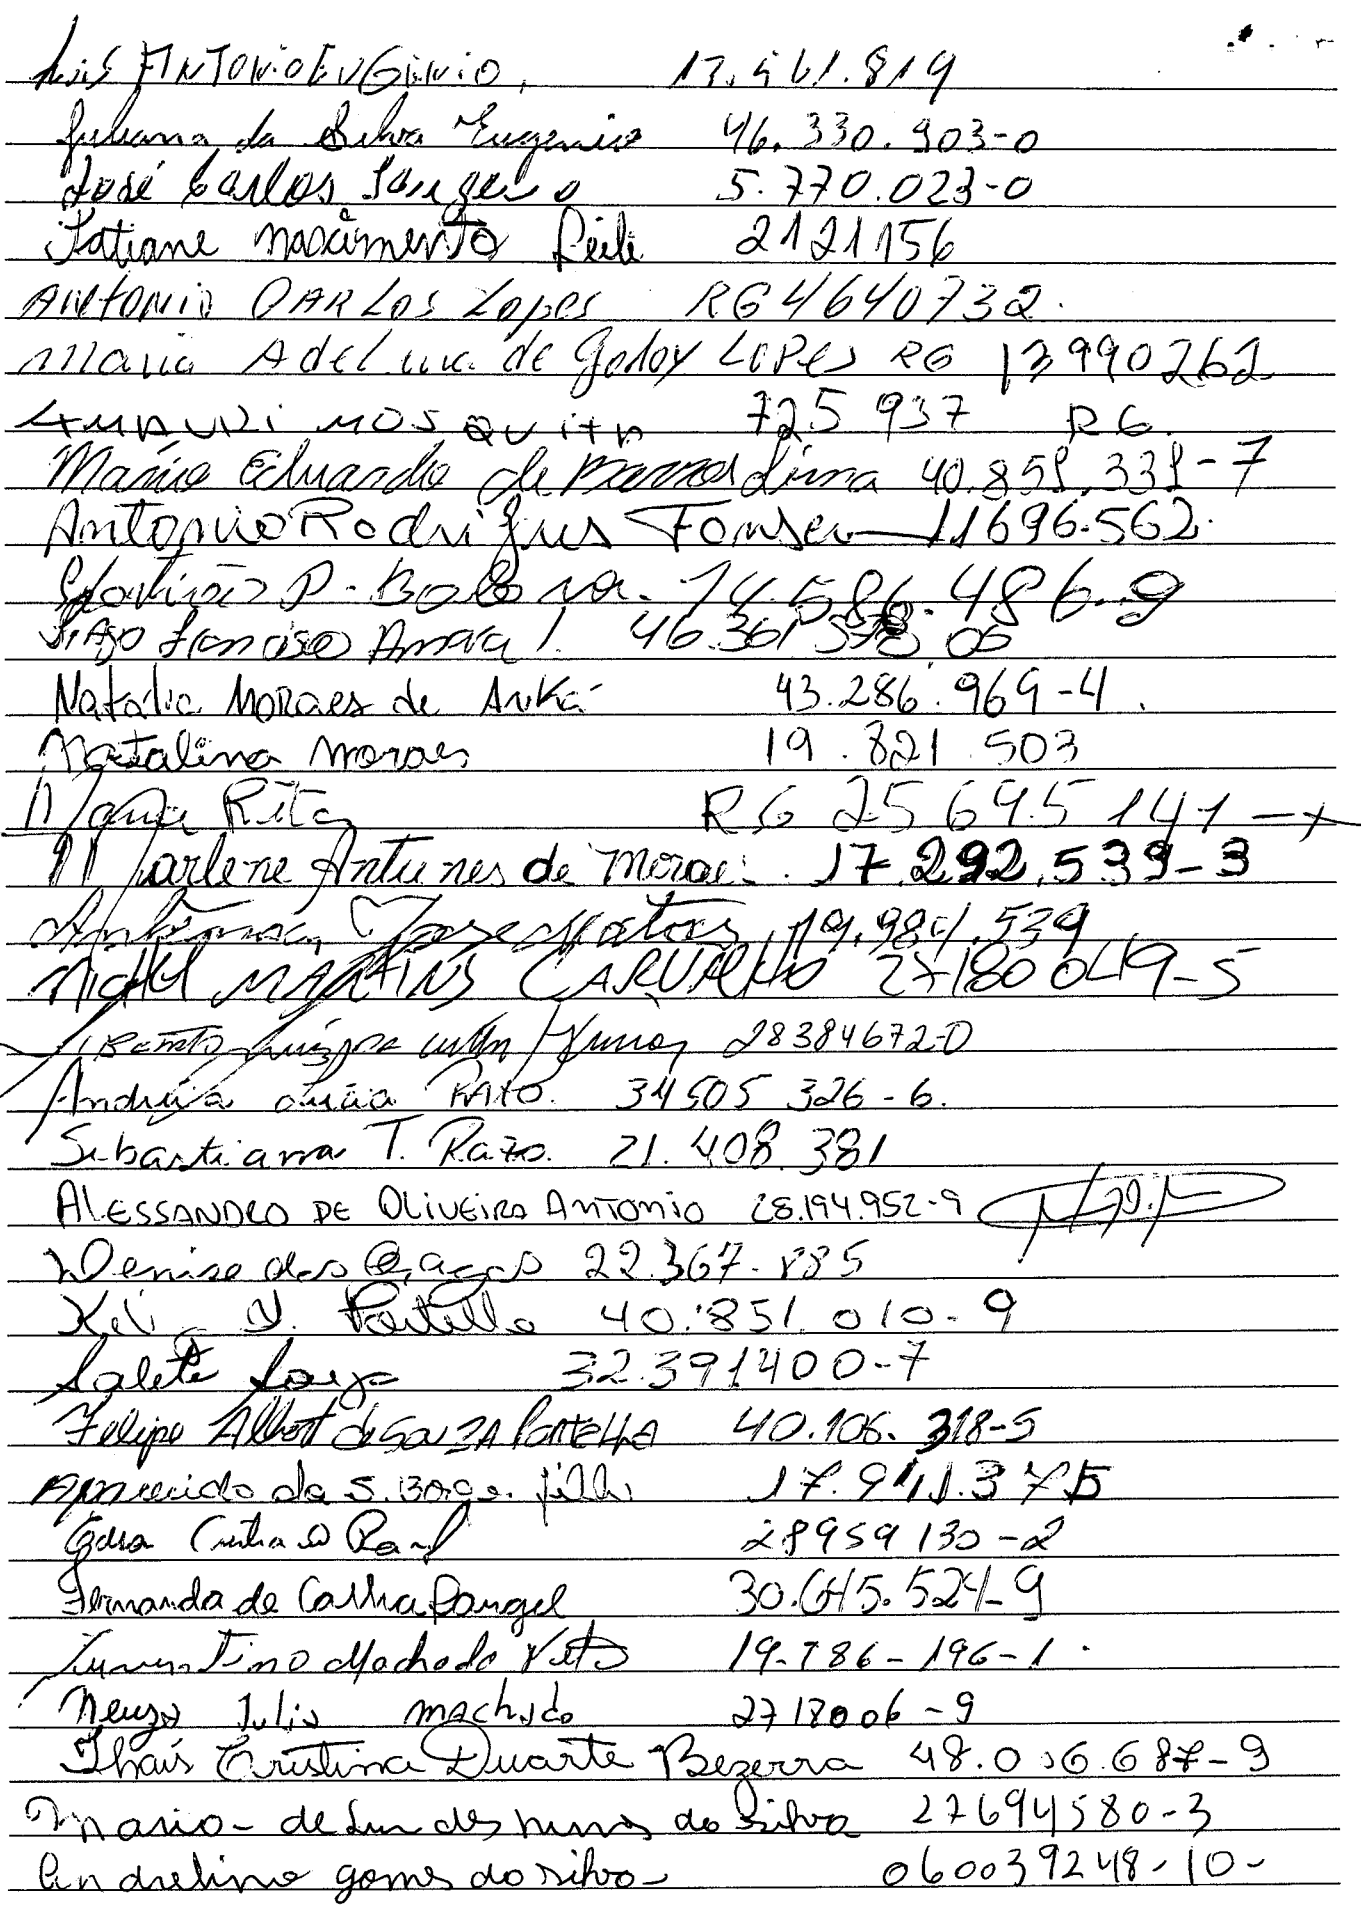 Luis ANTONIO EUGENIO, 17.561.819
Juliana da Silva Eugenio 46.330.903-0
José Carlos 5.770.023-0
Tatiane nascimento Leile 2121156
ANTONIO CARLOS Lopes RG 4640732.
Maria Adelina de Godoy LOPES RG 13990262
AMAURI MOSQUITA 725937 RG.
Maria Eduarda de Barros Lima 40.858.338-7
Antonio Rodrigues Fonseca 11696.562.
P. 14.586.486-9
Tiago Francisco Amaral. 46.361
Natalia Moraes de 43.286.969-4.
Natalina moraes 19.821.503
Maria Rita RG 25 695 141-x
Marlene Antunes de Morae. 17.292.539-3
Jose Matos 19.984.539
Michel MARTINS CARVALHO 27180049-5
Luiz 28384672-0
Andréia Lúcia RATO. 34505 326-6.
Sebastiana T. Rato. 21.408.381
ALESSANDRO DE OLIVEIRA ANTONIO 28.194.952-9
Denise das Graças 22.367.885
Portella 40.851.010-9
Salete Souza 32.391400-7
Felipe Albert de SOUZA PORTELLA 40.106.318-5
Aparecido da S. Borge. filho 17.911.375
28959130-2
Fernanda de Rangel 30.645.524-9
Juventino Machado Neto 19.786-196-1.
Neuza Julia machado 2718006-9
Thaís Cristina Duarte Bezerra 48.036.687-9
Maria-de Lurdes nunes da Silva 27694580-3
Andrelino gomes da silva- 060039248-10-